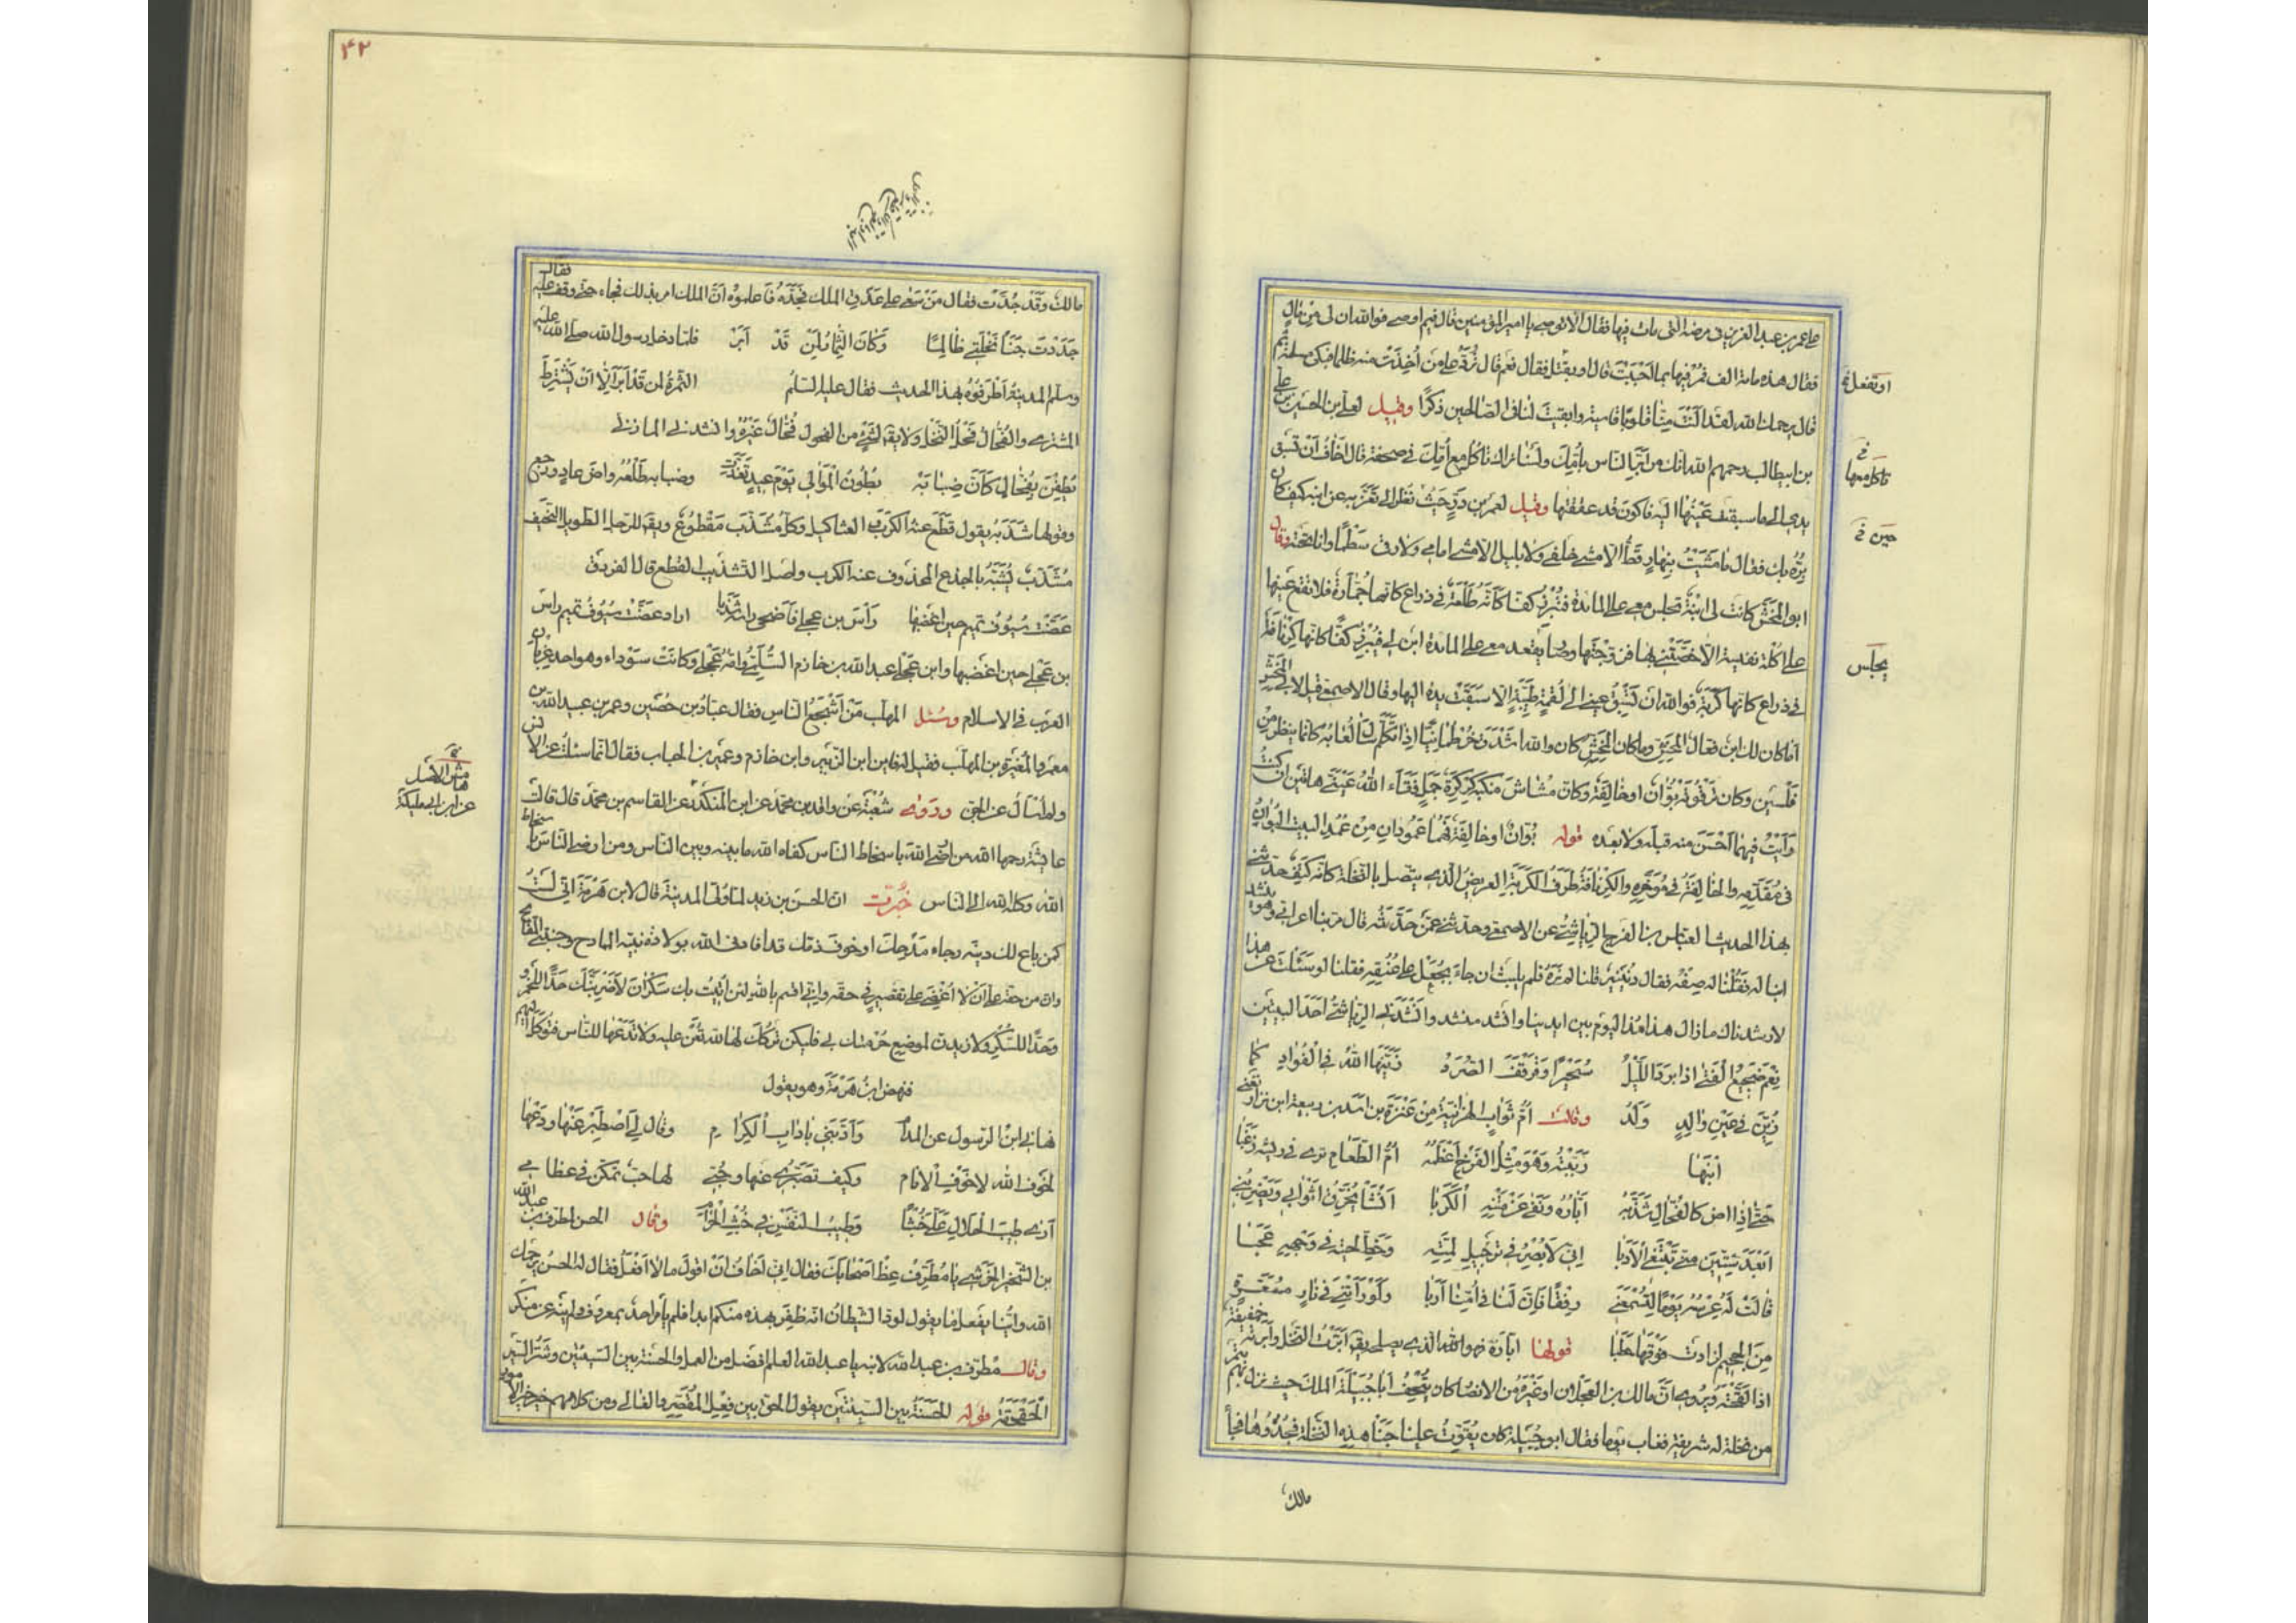 على عمر بن عبد العزيز فى مرضه التى مات فيها فقال الا توصى يا امير المؤمنين قال فيم اوصى فوالله ان لى من مال
فقال هذه مائة الف فمر فيها بما احببت قال او تقبل فقال نعم قال ترد على من اخذت منه ظلما فبكى مسلمة ثم
قال يرحمك الله لقد النت منا قلوبا قاسية وابقيت لنا فى الصالحين ذكرا وقيل لعلى بن الحسين بن على
بن ابيطالب رحمهم الله انك من ابر الناس بامك ولسنا نراك تاكل مع امك فى صحفة قال اخاف ان تسبق
يدى الى ما سبقت عينها اليه فاكون قد عققتها وقيل لعمر بن ذر حيث نظر الى تعزيه عن ابنه كيف كان
بره بك فقال ما مشيت بنهار قط الا مشى خلفى ولا بليل الا مشى امامى ولا رقى سطحا وانا تحته وقال
ابو المخش كانت لى ابنة تجلس معى على المائدة فتبرز كفا كأنه طلعة فى ذراع كانها جمارة فلا تقع عينها
على اكلة نفيسة الا خصتنى بها فزوجتها وصار يقعد معى على المائدة ابن لى فيبرز كفا كانها كرنافة
فى ذراع كانها كربة فوالله ان تسبق عينى الى لقمة طيبة الا سبقت يده اليها وقال الاصمعى قيل لابى المخش
اما كان لك ابن فقال المخش وما كان المخش كان والله اشدق خرطمانيا اذا تكلم سال لعابه كانما ينظر من
قلتين وكان ترقوته بوان او خالفة وكان مشاش منكبيه كركرة جمل فقأ الله عينى هاتين ان كنت
رأيت فيهما احسن منه قبله ولا بعده قوله بوان او خالفة فهما عمودان من عمد البيت البوان
فى مقدمه والخالفة فى مؤخره والكرنافة طرف الكربة العريض الذى يتصل بالنخلة كانه كتف حدثنى
بهذا الحديث العباس بن الفرج الرياشى عن الاصمعى وحدثنى عمن حدثه قال مر بنا اعرابى وهو ينشد
ابنا له فقلنا له صفه فقال دنينير قلنا لم نره فلم يلبث ان جاء بجعل على عنقه فقلنا لو سئلت عن هذا
لارشدناك ما زال هذا منذ اليوم بين ايدينا وانشد منشد وانشدنى الرياشى احد البيتين
نعم ضجيع الفتى اذا برد الليل سحيرا وقرقف الصرد زينها الله فى الفؤاد كما
زين فى عين والد ولد وقالت ام ثواب الهزانية من عنزة بن اسد بن ربيعة ابن نزار تعنى
ابنها ربيته وهو مثل الفرخ اعظمه ام الطعام ترى فى ريشه زغبا
حتى اذا اض كالفحال شذبه اباره ونفى عن متنه الكربا انشأ يخرق اثوابى ويضربنى
ابعد ستين منى يبتغى الادبا انى لابصر فى ترجيل لمته وخط لحيته فى وجهه عجبا
قالت له عرسه يوما لتسمعنى رفقا فان لنا فى امنا اربا ولو رأتنى فى نار مسعرة
من الجحيم لزادت فوقها حطبا قولها اباره فهو الذى يصلحه يقال ابرت النخل وابرته خفيفة
اذا لقحته ويروى ان مالك بن العجلان او غيره من الانصار كان يتحف ابا جبيلة الملك حيث نزل بهم بتمر
من نخلة له شريفة فغاب يوما فقال ابو جبيلة كان يفوت علينا جنا هذه النخلة فجدوها فجاء
مالك
او تفعل
تاكل معها
حين
يجلس
۴۲
مالك وقد جدت فقال من سعى على عذقى الملك فجده فاعلموه ان الملك امر بذلك فجاء حتى وقف عليه فقال
جددت جنا نخلتى ظالما وكان الثمار لمن قد ابر فلما دخل رسول الله صلى الله عليه
وسلم المدينة اطرفوه بهذا الحديث فقال عليه السلم الثمرة لمن قد ابر الا ان يشترط
المشترى والفحال فحل النخل ولا يقال لشئ من الفحول فحال غيره وانشدنى المازنى
يطفن بفحال كأن ضبابه بطون الموالى يوم عيد تغدت وضبابه طلعه واض عاد ورجع
وقولها شذبه يقول قطع عنه الكرب و العثاكيل وكل مشذب مقطوع ويقال للرجل الطويل النحيف
مشذب يشبه بالجذع المحذوف عنه الكرب واصل التشذيب القطع قال الفرزدق
عضت سيوف تميم حين اغضبها رأس بن عجلى فأضحى رأسه شذبا اراد عضت سيوف تميم رأس
بن عجلى حين اغضبها وابن عجلى عبد الله بن خازم السلمى وامه عجلى وكانت سوداء وهو احد غربان
العرب فى الاسلام وسئل المهلب من اشجع الناس فقال عباد بن حصين وعمر بن عبيد الله بن
معمر والمغيرة بن المهلب فقيل له فاين ابن الزبير وابن خازم وعمير بن الحباب فقال انما سئلت عن الانس
ولم اسأل عن الجن وروى شعبة عن واقد بن محمد عن ابن المنكدر عن القاسم بن محمد قال قالت
عائشة رحمها الله من ارضى الله باسخاط الناس كفاه الله ما بينه وبين الناس ومن ارضى الناس باسخاط
الله وكله الله الى الناس خبرت ان الحسن بن زيد لما ولى المدينة قال لابن هرمة انى لست
كمن باع لك دينه رجاء مدحك او خوف ذمك قد افادنى الله بولادة نبيه الممادح وجنبنى المقابح
وان من حقه على ان لا اغضى على تقصير فى حقه وانى اقسم بالله لئن اتيت بك سكران لاضربنك حدا للخمر
وحدا للسكر ولازيدن لموضع حرمتك بى فليكن تركك لها لله تعن عليه ولا تدعها للناس فتوكل اليهم
فنهض ابن هرمة وهو يقول
نهانى ابن الرسول عن المدام وادبنى باداب الكرام وقال لى اصطبر عنها ودعها
لخوف الله لا خوف الانام وكيف تصبرى عنها وحبى لها حب تمكن فى عظامى
ارى طيب الحلال على خبثا وطيب النفس فى خبث الحرام وقال الحسن لمطرف بن عبد الله
بن الشخير الحرشى يا مطرف عظ اصحابك فقال انى اخاف ان اقول ما لا افعل فقال له الحسن يرحمك
الله واينا يفعل ما يقول لود الشيطان انه ظفر بهذه منكم ابدا فلم يأمر احد بمعروف ولم ينه عن منكر
وقال مطرف بن عبد الله لابنه يا عبد الله العلم افضل من العمل والحسنة بين السيئتين وشر السير
الحقحقة قوله الحسنة بين السيئتين يقول الحق بين فعل المقصر والغالى ومن كلامهم خير الامور
هامش الاصل
عن ابن ابى مليكة